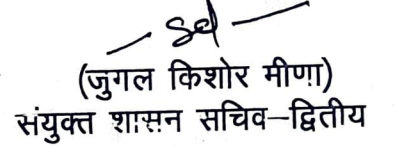 – Sd –
(जुगल किशोर मीणा)
संयुक्त शासन सचिव–द्वितीय